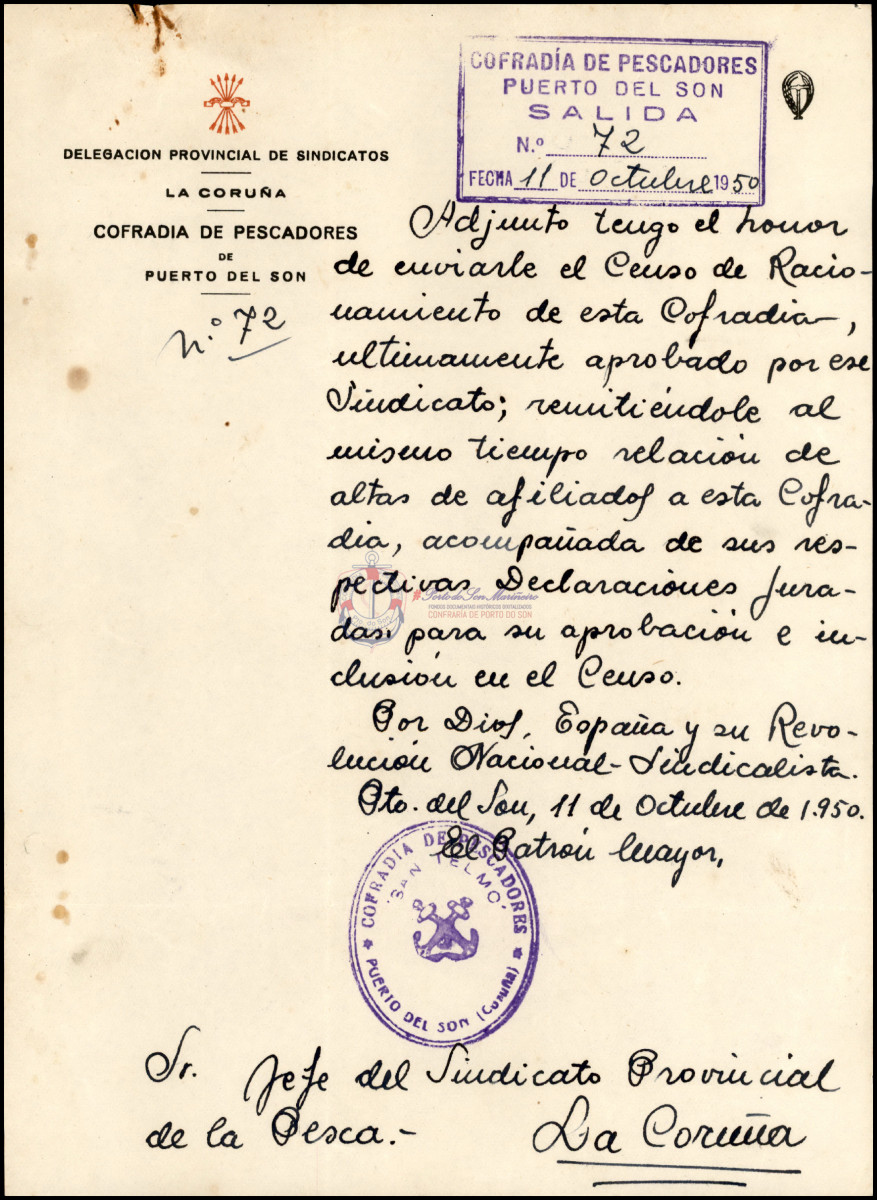 DELEGACION PROVINCIAL DE SINDICATOS
LA CORUÑA
COFRADIA DE PESCADORES
DE
PUERTO DEL SON
n.º 72
COFRADÍA DE PESCADORES
PUERTO DEL SON
SALIDA
N.º 72
FECHA 11 DE Octubre 1950
Adjunto tengo el honor
de enviarle el Censo de Racio-
namiento de esta Cofradia,
ultimamente aprobado por ese
Sindicato; remitiéndole al
mismo tiempo relación de
altas de afiliados a esta Cofra-
dia, acompañada de sus res-
pectivas Declaraciones Jura-
das, para su aprobación e in-
clusión en el Censo.
Por Dios, España y su Revo-
lución Nacional-Sindicalista.
Pto. del Son, 11 de Octubre de 1.950.
El Patrón Mayor,
COFRADIA DE PESCADORES
"SAN TELMO"
PUERTO DEL SON (CORUÑA)
Sr. Jefe del Sindicato Provincial
de la Pesca.-
La Coruña
Porto do Son Mariñeiro
FONDOS DOCUMENTAIS HISTÓRICOS DIXITALIZADOS
CONFRARÍA DE PORTO DO SON